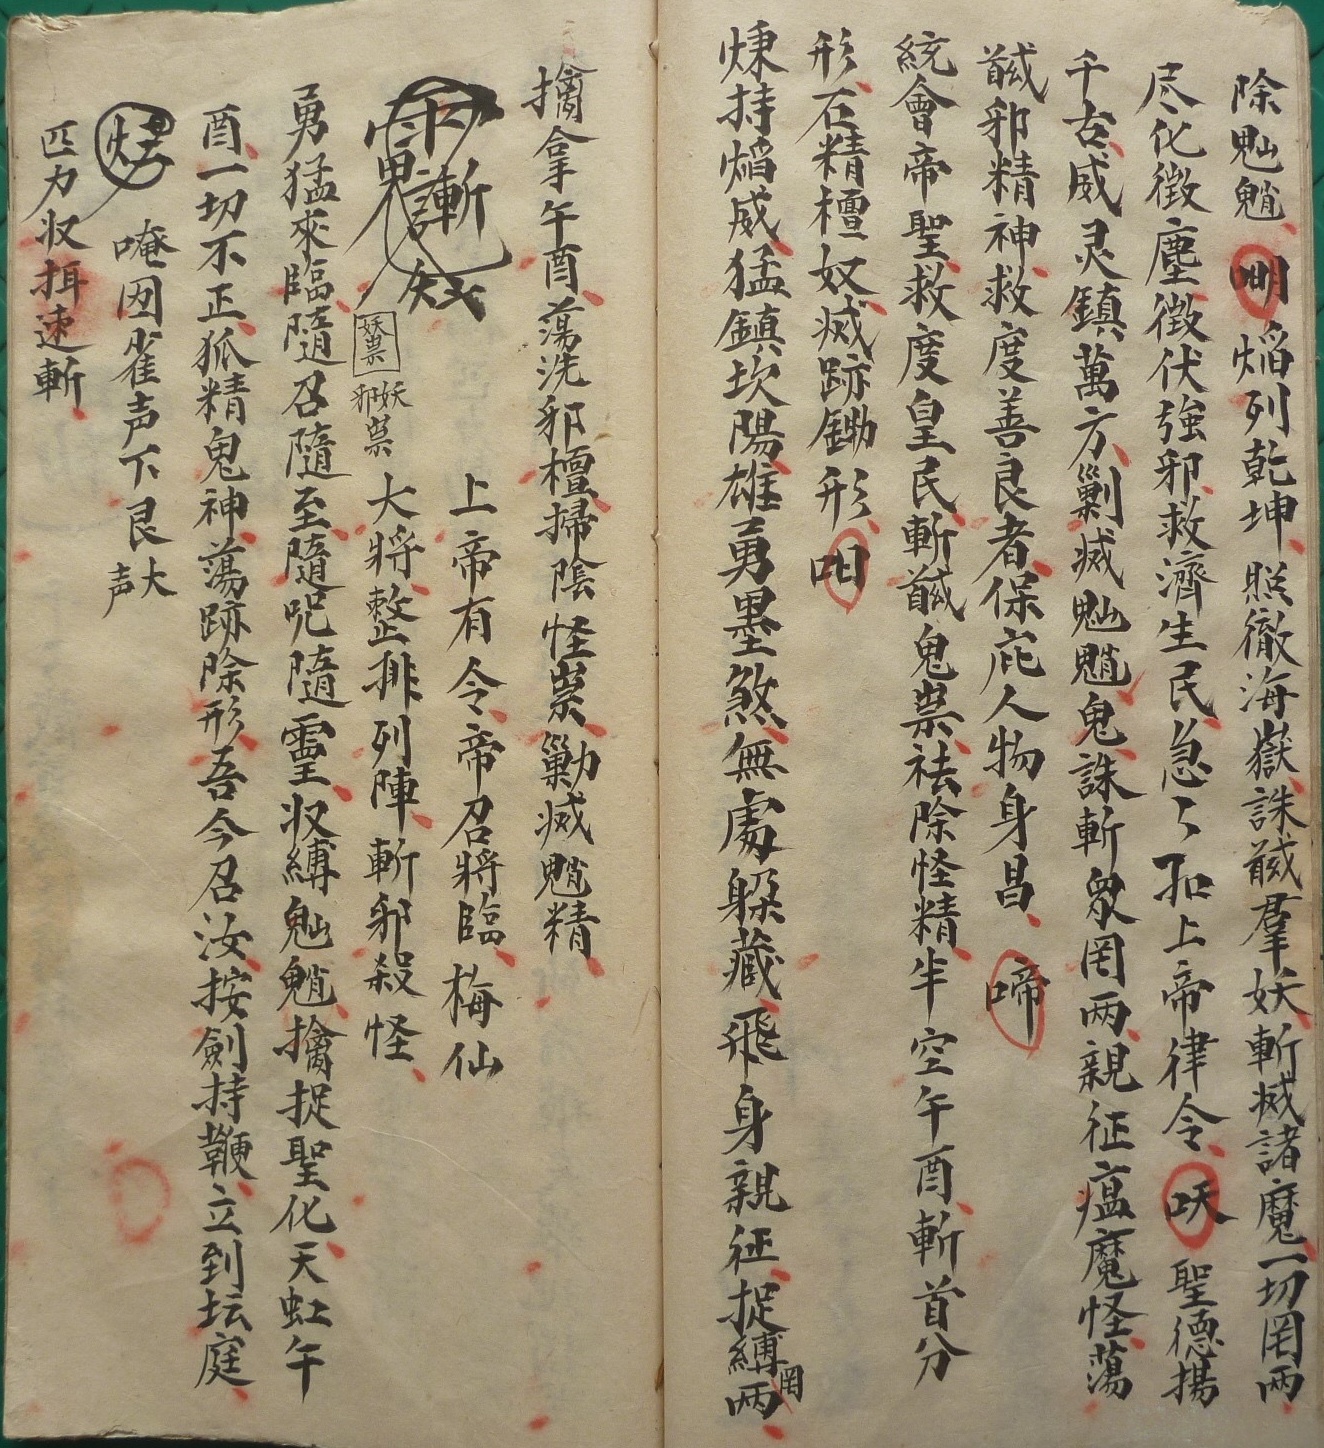 除魈魖明焰列乾坤照徹海嶽誅馘羣妖斬滅諸魔一切罔両
尽化微塵徴伏強邪救濟生民急々扣上帝律令呋聖德揚
千古威灵鎮萬方剿滅魈鬼誅斬眾罔両親征瘟魔怪蕩
馘邪精神救度善良者保庇人物身昌啼
統會帝聖救度皇民斬馘鬼祟祛除怪精半空午酉斬首分
形石精檀奴滅跡鋤形呾
煉持焰威猛鎮坎陽雄勇墨煞無處躲藏飛身親征捉縛罔両
擒拿午酉蕩洗邪檀掃陰怪祟勦滅精
上帝有令帝召將臨梅仙
斬 妖祟 邪妖祟 大將整排列陣斬邪殺怪
勇猛來臨隨召隨至隨呪隨靈収縛擒捉聖化天虹午
酉一切不正狐精鬼神蕩跡除形吾今召汝按劍持鞭立到坛庭
唵因雀声下艮大声
匹力収揖速斬